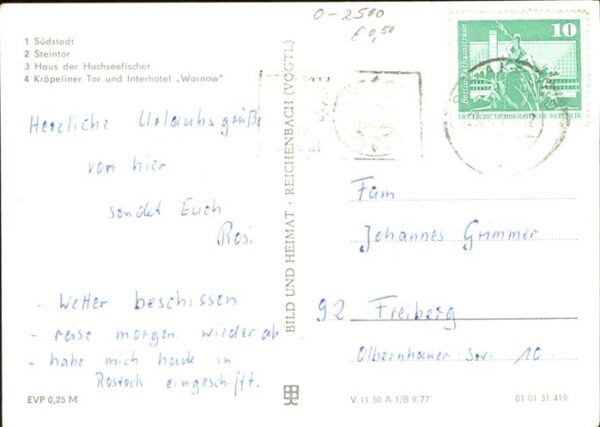 1 Südstadt
2 Steintor
3 Haus der Hochseefischer
4 Kröpeliner Tor und Interhotel „Warnow"
Herzliche Urlaubsgrüße
von hier
sendet Euch
Rosi.
- Wetter beschissen
- reise morgen wieder ab
- habe mich heute in
Rostock eingeschifft.
EVP 0,25 M
BILD UND HEIMAT · REICHENBACH (VOGTL)
0-2500
£ 0,50
10
DEUTSCHE DEMOKRATISCHE REPUBLIK
Fam
Johannes Grimmer
92 Freiberg
Olbernhauer Str. 10
V 11 50 A 1/B 9/77
01 01 31 419